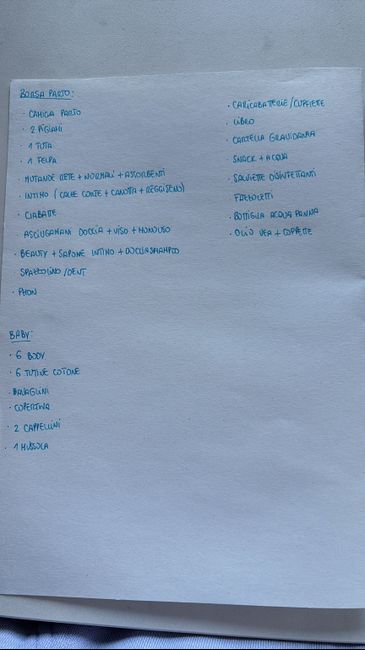 BORSA PARTO:
· CAMICIA PARTO
· 2 PIGIAMI
· 1 TUTA
· 1 FELPA
· MUTANDE RETE + NORMALI + ASSORBENTI
· INTIMO (CALZE CORTE + CANOTTA + REGGISENO)
· CIABATTE
· ASCIUGAMANI DOCCIA + VISO + MONOUSO
· BEAUTY + SAPONE INTIMO + DOCCIASHAMPOO
· SPAZZOLINO/DENT
· PHON
BABY:
· 6 BODY
· 6 TUTINE COTONE
· BAVAGLINI
· COPERTINA
· 2 CAPPELLINI
· 1 MUSSOLA
· CARICABATTERIE/CUFFIETTE
· LIBRO
· CARTELLA GRAVIDANZA
· SNACK + ACQUA
· SALVIETTE DISINFETTANTI
FAZZOLETTI
· BOTTIGLIA ACQUA PANNA
· OLIO VEA + COPPETTE